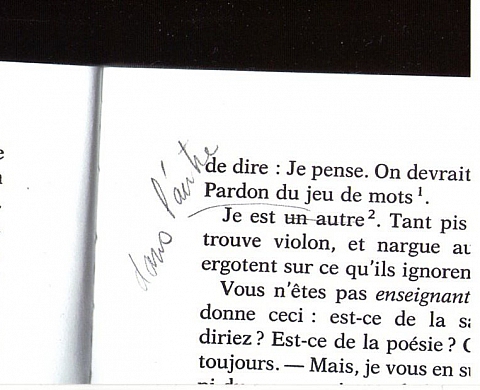 dans l'autre
de dire : Je pense. On devrait
Pardon du jeu de mots¹.
Je est un autre². Tant pis
trouve violon, et nargue au
ergotent sur ce qu'ils ignoren
Vous n'êtes pas enseignant
donne ceci : est-ce de la sa
diriez ? Est-ce de la poésie ? C
toujours. — Mais, je vous en su